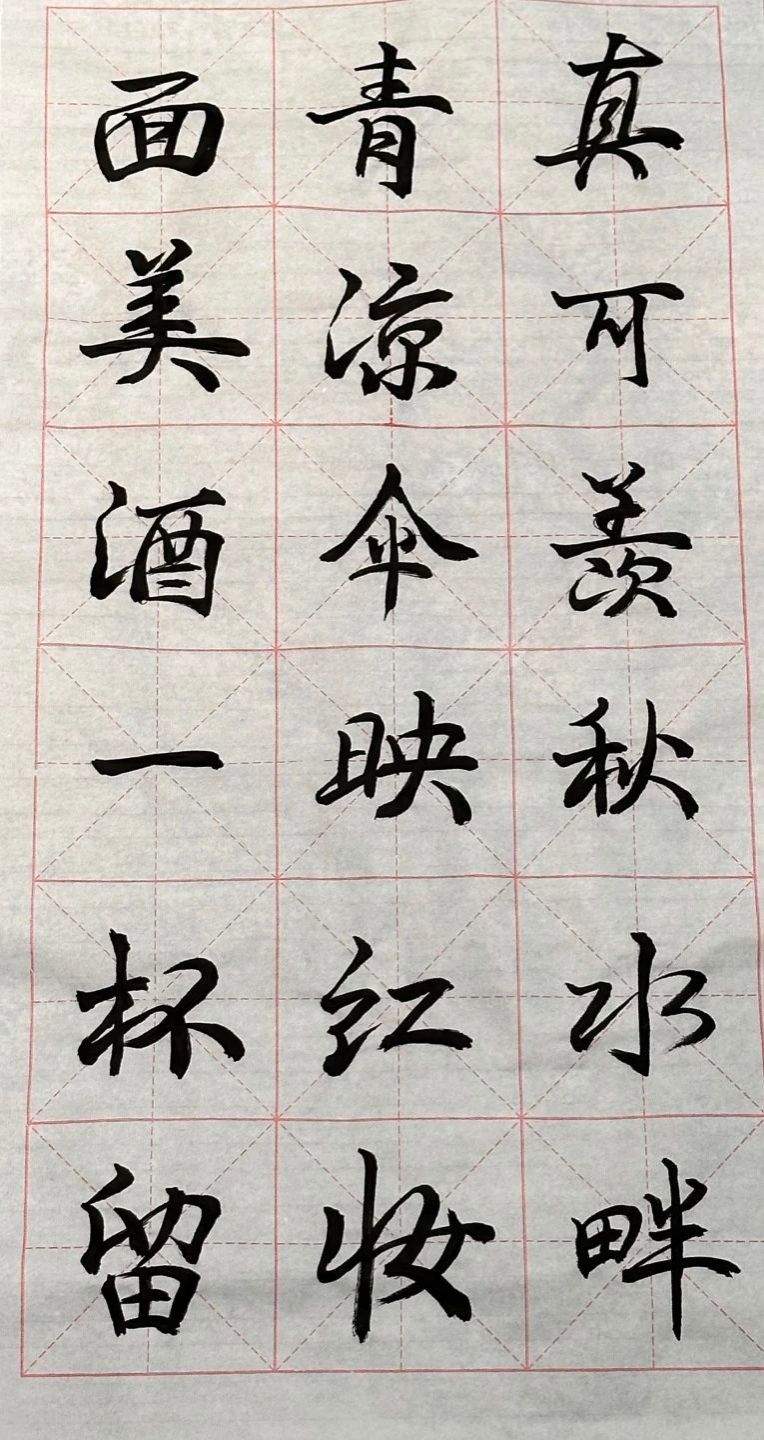 真可羡秋水畔
青凉伞映红妆
面美酒一杯留